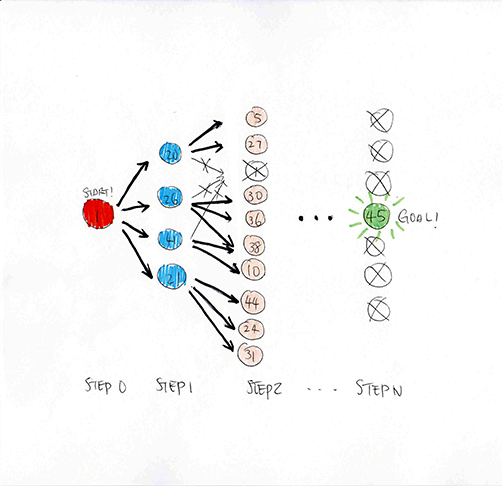 START!
20
26
41
21
5
27
30
36
38
10
44
24
31
...
45 GOAL!
STEP 0 STEP 1 STEP 2 ... STEP N